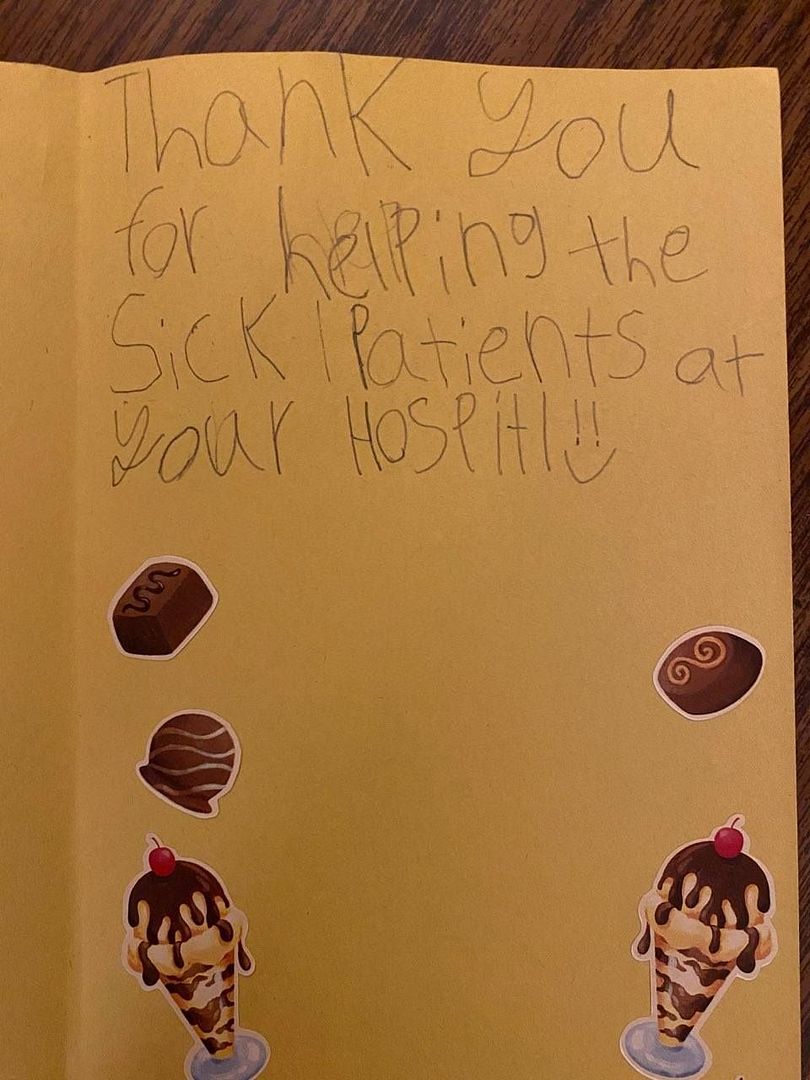 Thank you
for helping the
Sick Patients at
your HOSPitl!!